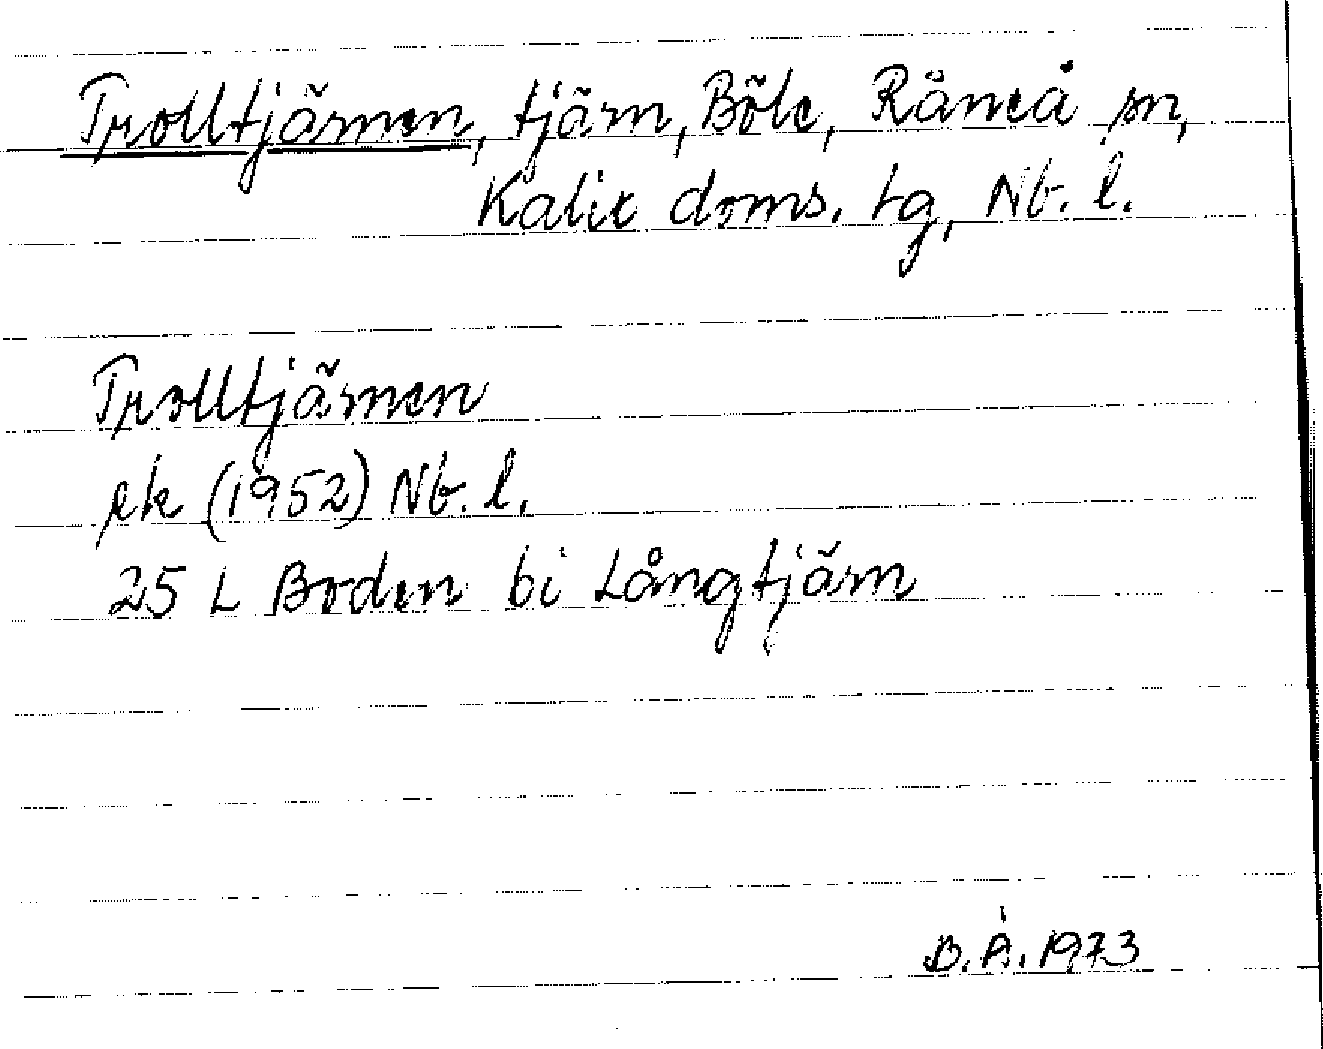 Trolltjärnen, tjärn, Böle, Råneå sn,
Kalix doms. tg, Nb. l.
Trolltjärnen
ek (1952) Nb. l.
25 L Boden bi Långtjärn
B. Å. 1973